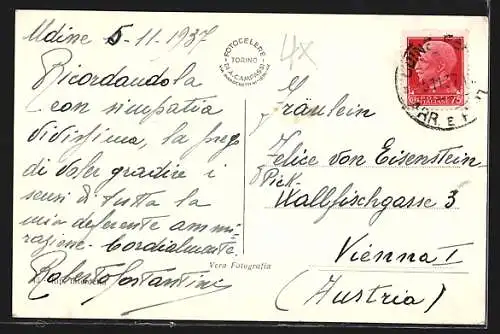 Udine 5-11-1937
Ricordandola
con simpatia
vivissima, la prego
di voler gradire i
sensi di tutta la
mia deferente ammi-
razione. Cordialmente.
Roberto Costantini
FOTOCELERE
TORINO
DI A. CAMPASSI
4x
POSTE ITALIANE
75
Fräulein
Felice von Eisenstein-
Pick
Wallfischgasse 3
Vienna I
(Austria)
Vera Fotografia